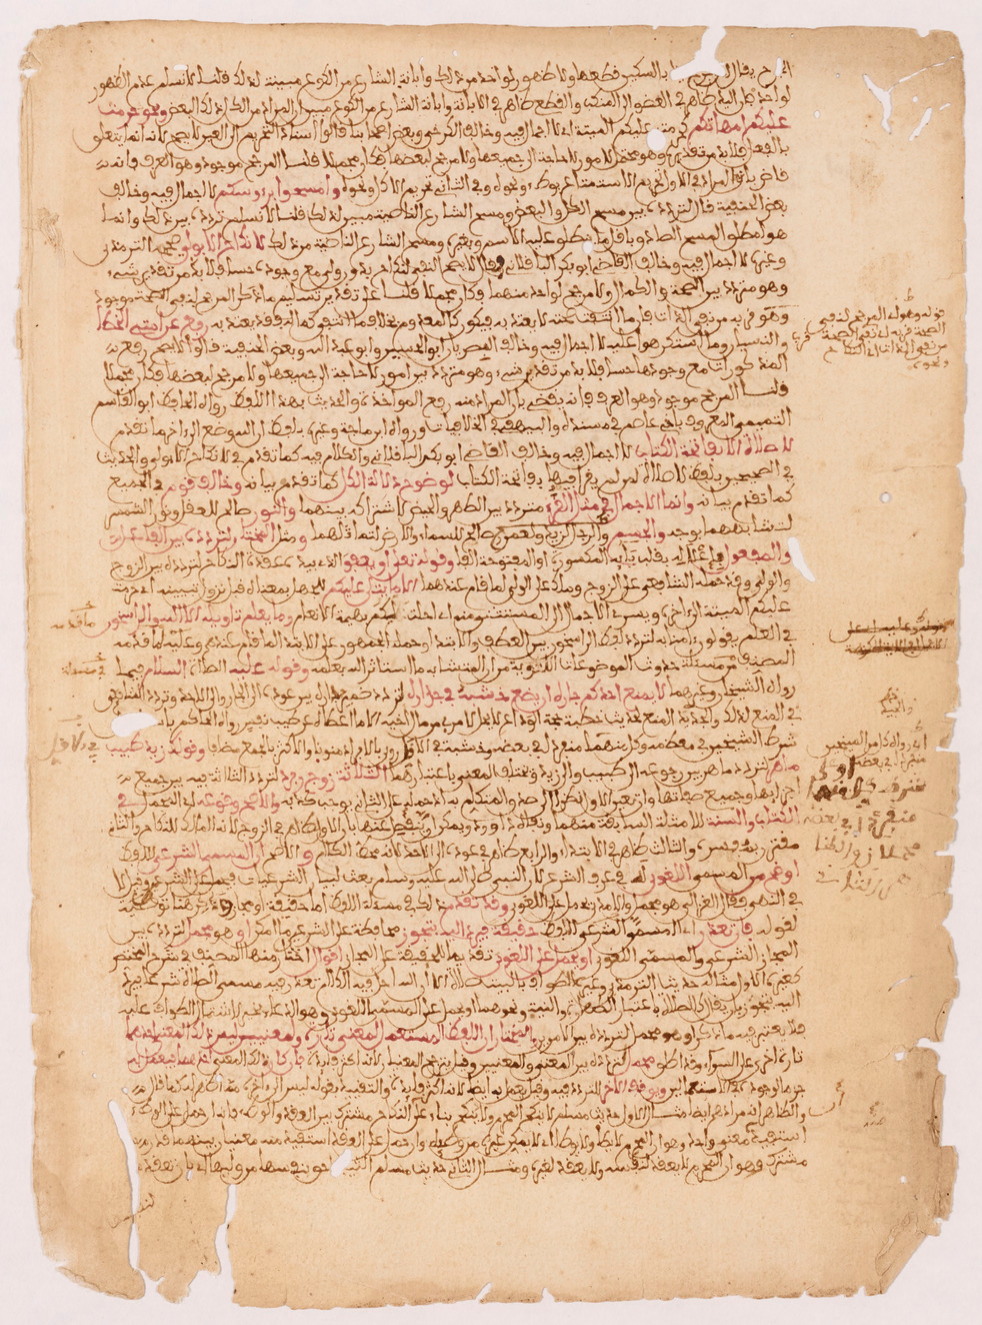 الجرح يقال بالسكين قطعها ولا ظهور لواحد من ذلك وابانة الشارع من الكوع مبينة لذلك قلنا لا نسلم عدم الظهور
لواحد فان اليد ظاهر في العضو الى المنكب والقطع ظاهر في الابانة وابانة الشارع من الكوع مبين ان المراد من الكل ذلك البعض ونحو حرمت
عليكم امهاتكم حرمت عليكم الميتة اي لا اجمال فيه وخالف الكرخي وبعض اصحابنا قالوا اسناد التحريم الى العين لا يصح لانه انما يتعلق
بالفعل فلا بد من تقديره وهو محتمل لامور لا حاجة الى جميعها ولا مرجح لبعضها فكان مجملا قلنا المرجح موجود وهو العرف فانه
قاض بان المراد في الاول تحريم الاستمتاع بوطء ونحوه وفي الثاني تحريم الاكل ونحوه وامسحوا برءوسكم لا اجمال فيه وخالف
بعض الحنفية قال لتردده بين مسح الكل والبعض ومسح الشارع الناصية مبين لذلك قلنا لا نسلم تردده بين ذلك وانما
هو لمطلق المسح الصادق باقل ما ينطلق عليه الاسم وبغيره ومسح الشارع الناصية من ذلك لا نكاح الا بولي صححه الترمذي
وغيره لا اجمال فيه وخالف القاضي ابو بكر الباقلاني فقال لا يصح النفي لنكاح بدون ولي مع وجوده حسا فلا بد من تقدير شيء
وهو متردد بين الصحة والكمال ولا مرجح لواحد منهما فكان مجملا قلنا على تقدير تسليم ما ذكر المرجح لنفي الصحة موجود
وهو قربه من نفي الذات فان ما انتفت صحته لا يعتد به فيكون كالمعدوم بخلاف ما انتفى كماله فقد يعتد به رفع عن امتي الخطأ
والنسيان وما استكرهوا عليه لا اجمال فيه وخالف البصريان ابو الحسين وابو عبد الله وبعض الحنفية قالوا لا يصح رفع
المذكورات مع وجودها حسا فلا بد من تقدير شيء وهو متردد بين امور لا حاجة الى جميعها ولا مرجح لبعضها فكان مجملا
قلنا المرجح موجود وهو العرف فانه يقضي بان المراد منه رفع المؤاخذة والحديث بهذا اللفظ رواه الحافظ ابو القاسم
التميمي المعروف باخي عاصم في مسنده والبيهقي في الخلافيات ورواه ابن ماجة وغيره بلفظ ان الله وضع الى اخر ما تقدم
لا صلاة الا بفاتحة الكتاب لا اجمال فيه وخالف القاضي ابو بكر الباقلاني والكلام فيه كما تقدم في لا نكاح الا بولي والحديث
في الصحيحين بلفظ لا صلاة لمن لم يقرا فيها بفاتحة الكتاب لوضوح دلالة الكل كما تقدم بيانه وخالف قوم في الجميع
كما تقدم بيانه وانما الاجمال في مثل القرء متردد بين الطهر والحيض لاشتراكه بينهما والنور صالح للعقل ونور الشمس
لتشابههما بوجه والجسم صالح للسماء والارض لتماثلهما ومثل المختار لتردده بين الفاعل
والمفعول باعلاله بقلب يائه المكسورة او المفتوحة الفا وقوله تعلى او يعفو الذي بيده عقدة النكاح لتردده بين الزوج
والولي وقد حمله الشافعي على الزوج ومالك على الولي لما قام عندهما الا ما يتلى عليكم للجهل بمعناه قبل نزول مبينه اي حرمت
عليكم الميتة الى اخره ويسري الاجمال الى المستثنى منه اي احلت لكم بهيمة الانعام وما يعلم تاويله الا الله والراسخون
في العلم يقولون امنا به لتردد لفظ الراسخون بين العطف والابتداء وحمله الجمهور على الابتداء لما قام عندهم وعليه ما قدمه
المصنف من مسئلة حدوث الموضوعات اللغوية من ان المتشابه ما استاثر الله بعلمه وقوله عليه الصلاة السلام فيما
رواه الشيخان وغيرهما لا يمنع احدكم جاره ان يضع خشبة في جداره لتردد ضمير جداره بين عوده الى الجار والى الاحد وتردد الشافعي
في المنع لذلك والجديد المنع لحديث خطبة حجة الوداع لا يحل لامرئ من مال اخيه الا ما اعطاه عن طيب نفس رواه الحاكم باسناد
شرط الشيخين في معظمه وكل منهما منفرد في بعضه وخشبة في الاول روي بالافراد منونا والاكثر بالجمع مضافا وقولك زيد طبيب
ماهر لتردد ماهر بين رجوعه الى طبيب والى زيد ويختلف المعنى باعتبارهما الثلاثة زوج وفرد لتردد الثلاثة فيه بين جميع
اجزائها وجميع صفاتها وان تعين الاول نظرا الى صدق المتكلم به اذ حمله على الثاني يوجب كذبه والاصح وقوعه اي المجمل في
الكتاب والسنة للامثلة السابقة منهما ونفاه داوود ويمكن ان ينفصل عنها بان الاول ظاهر في الزوج لانه المالك للنكاح والثاني
مقترن بمفسره والثالث ظاهر في الابتداء والرابع ظاهر في عوده الى الاحد لانه محط الكلام والاصح ان المسمى الشرعي للفظ
اوضح من المسمى اللغوي له في عرف الشرع لان النبي صلى الله عليه وسلم بعث لبيان الشرعيات فيحمل على الشرعي وقيل لا
في النهي فقال الغزالي هو مجمل والامدي يحمل على اللغوي وقد تقدم ذلك في مسئلة اللفظ اما حقيقة او مجاز
لقوله فان تعذر اي المسمى الشرعي للفظ حقيقة فيرد اليه بتجوز محافظة على الشرعي ما امكن او هو مجمل لتردده بين
المجاز الشرعي والمسمى اللغوي او يحمل على اللغوي تقديما للحقيقة على المجاز اقوال اختار منها المصنف في شرح المختصر
كغيره الاول مثاله حديث الترمذي وغيره الطواف بالبيت صلاة الا ان الله احل فيه الكلام تعذر فيه مسمى الصلاة شرعا فيرد
اليه بتجوز بان يقال كالصلاة في اعتبار الطهارة والنية ونحوهما او يحمل على المسمى اللغوي وهو الدعاء بخير لاشتمال الطواف عليه
فلا يعتبر فيه ما ذكر او هو مجمل لتردده بين الامرين والمختار ان اللفظ المستعمل لمعنى تارة ولمعنيين ليس ذلك المعنى احدهما
تارة اخرى على السواء وقد اطلق مجمل لتردده بين المعنى والمعنيين وقيل يترجح المعنيان لانه اكثر فايدة فان كان ذلك المعنى احدهما فيعمل به
جزما لوجوده في الاستعمالين ويوقف الاخر للتردد فيه وقيل يعمل به ايضا لانه اكثر فايدة والتقييد بقوله ليس الى اخره مما ظهر له كما قال
والظاهر انه مرادهم ايضا مثال الاول حديث مسلم لا ينكح المحرم ولا ينكح بناء على ان النكاح مشترك بين العقد والوطء فانه ان حمل على الوطء
استفيد منه معنى واحد وهو ان المحرم لا يطأ ولا يوطئ اي لا يمكن غيره من وطئه وان حمل على العقد استفيد منه معنيان بينهما قدر
مشترك وهو ان المحرم لا يعقد لنفسه ولا يعقد لغيره ومثال الثاني حديث مسلم الثيب احق بنفسها من وليها اي بان تعقد
لنفسها
قوله وهو اي المرجح لنفي
الصحة قربه اي نفي الصحة
من نفي الذات اي النكاح
ونحوه
ما قدمه
في مسئلة